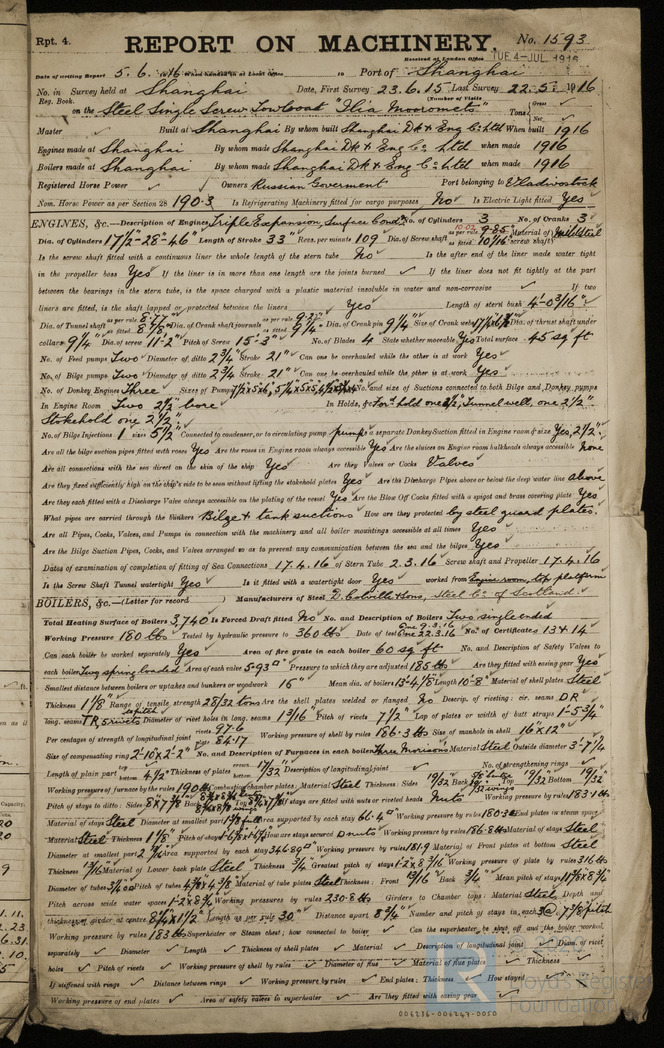 Rpt. 4.
REPORT ON MACHINERY.
No. 1593
Received at London Office TUE. 4-JUL. 1916
Date of writing Report 5. 6. 1916 When handed in at Local Office to Port of Shanghai
No. in Survey held at Shanghai Date, First Survey 23.6.15 Last Survey 22.5. 1916
Reg. Book. (Number of Visits
on the Steel Single Screw Towboat "Ilia Mooromets" Tons Gross Net
Master Built at Shanghai By whom built Shanghai Dk & Eng Co. Ltd When built 1916
Engines made at Shanghai By whom made Shanghai Dk & Eng Co. Ltd when made 1916
Boilers made at Shanghai By whom made Shanghai Dk & Eng Co. Ltd when made 1916
Registered Horse Power Owners Russian Goverment Port belonging to Vladivostock
Nom. Horse Power as per Section 28 190.3 Is Refrigerating Machinery fitted for cargo purposes No Is Electric Light fitted Yes
ENGINES, &c.—Description of Engines Triple Expansion, Surface Cond. No. of Cylinders 3 No. of Cranks 3
Dia. of Cylinders 17½"-28"-46" Length of Stroke 33" Revs. per minute 109 Dia. of Screw shaft as per rule 9.85 as fitted 10 1/16" Material of screw shaft Mild Steel
Is the screw shaft fitted with a continuous liner the whole length of the stern tube No Is the after end of the liner made water tight
in the propeller boss Yes If the liner is in more than one length are the joints burned If the liner does not fit tightly at the part
between the bearings in the stern tube, is the space charged with a plastic material insoluble in water and non-corrosive If two
liners are fitted, is the shaft lapped or protected between the liners Yes Length of stern bush 4'-0 3/16"
Dia. of Tunnel shaft as per rule 8.77" as fitted 8 7/8" Dia. of Crank shaft journals as per rule 9.21" as fitted 9¼" Dia. of Crank pin 9¼" Size of Crank webs Dia. of thrust shaft under
collars 9¼" Dia. of screw 11'-2" Pitch of Screw 15'-3" No. of Blades 4 State whether moveable Yes Total surface 45 sq ft
No. of Feed pumps Two Diameter of ditto 2¾" Stroke 21" Can one be overhauled while the other is at work Yes
No. of Bilge pumps Two Diameter of ditto 2¾" Stroke 21" Can one be overhauled while the other is at work Yes
No. of Donkey Engines Three Sizes of Pumps No. and size of Suctions connected to both Bilge and Donkey pumps
In Engine Room Two 2½" bore In Holds, &c. For'd hold one 2½", Tunnel well, one 2½"
Stokehold one 2½"
No. of Bilge Injections 1 sizes 5½" Connected to condenser, or to circulating pump pump Is a separate Donkey Suction fitted in Engine room & size Yes, 2½"
Are all the bilge suction pipes fitted with roses Yes Are the roses in Engine room always accessible Yes Are the sluices on Engine room bulkheads always accessible None
Are all connections with the sea direct on the skin of the ship Yes Are they Valves or Cocks Valves
Are they fixed sufficiently high on the ship's side to be seen without lifting the stokehold plates Yes Are the Discharge Pipes above or below the deep water line above
Are they each fitted with a Discharge Valve always accessible on the plating of the vessel Yes Are the Blow Off Cocks fitted with a spigot and brass covering plate Yes
What pipes are carried through the bunkers Bilge & tank suctions How are they protected by steel guard plates.
Are all Pipes, Cocks, Valves, and Pumps in connection with the machinery and all boiler mountings accessible at all times Yes
Are the Bilge Suction Pipes, Cocks, and Valves arranged so as to prevent any communication between the sea and the bilges Yes
Dates of examination of completion of fitting of Sea Connections 17.4.16 of Stern Tube 2.3.16 Screw shaft and Propeller 17.4.16
Is the Screw Shaft Tunnel watertight Yes Is it fitted with a watertight door Yes worked from Engine room, top platform
BOILERS, &c.—(Letter for record ) Manufacturers of Steel D. Colville & Sons, Steel Co. of Scotland.
Total Heating Surface of Boilers 3,740 Is Forced Draft fitted No No. and Description of Boilers Two single ended
Working Pressure 180 lbs Tested by hydraulic pressure to 360 lbs Date of test One 9.3.16 One 22.3.16 No. of Certificates 13 & 14
Can each boiler be worked separately Yes Area of fire grate in each boiler 60 sq ft No. and Description of Safety Valves to
each boiler Two spring loaded Area of each valve 5.93 Pressure to which they are adjusted 185 lbs Are they fitted with easing gear Yes
Smallest distance between boilers or uptakes and bunkers or woodwork 16" Mean dia. of boilers 13'-4 1/8" Length 10'-8" Material of shell plates Steel
Thickness 1 1/8" Range of tensile strength 28/32 tons Are the shell plates welded or flanged No Descrip. of riveting: cir. seams D.R
long. seams T.R. 5 rivets Diameter of rivet holes in long. seams 1 3/16" Pitch of rivets 7½" Lap of plates or width of butt straps 1'-5¾"
Per centages of strength of longitudinal joint rivets 97.6 plate 84.17 Working pressure of shell by rules 186.3 lbs Size of manhole in shell 16"x12"
Size of compensating ring 2'-10"x2'-2" No. and Description of Furnaces in each boiler Three Morisons Material Steel Outside diameter 3'-7¼"
Length of plain part top bottom 4½" Thickness of plates crown bottom 17/32" Description of longitudinal joint No. of strengthening rings
Working pressure of furnace by the rules 190 lbs Combustion chamber plates: Material Steel Thickness: Sides 19/32" Back Top 19/32" Bottom 19/32"
Pitch of stays to ditto: Sides 8"x7 7/8" Back Top If stays are fitted with nuts or riveted heads Nuts Working pressure by rules 183.1 lbs
Material of stays Steel Diameter at smallest part Area supported by each stay 66.4 Working pressure by rules 180.3 End plates in steam space
Material Steel Thickness 1 1/8" Pitch of stays How are stays secured D nuts Working pressure by rules 186.8 lbs Material of stays Steel
Diameter at smallest part Area supported by each stay 346.89 Working pressure by rules 181.9 Material of Front plates at bottom Steel
Thickness 13/16" Material of Lower back plate Steel Thickness ¾" Greatest pitch of stays Working pressure of plate by rules 316 lbs
Diameter of tubes Pitch of tubes Material of tube plates Steel Thickness: Front 13/16" Back ¾" Mean pitch of stays
Pitch across wide water spaces Working pressures by rules 230.8 lbs Girders to Chamber tops: Material Steel Depth and
thickness of girder at centre 8¼"x1½" Length as per rule 30" Distance apart 8¾" Number and pitch of stays in each 3@ 7 7/8" pitch
Working pressure by rules 183 lbs Superheater or Steam chest; how connected to boiler Can the superheater be shut off and the boiler worked
separately Diameter Length Thickness of shell plates Material Description of longitudinal joint Diam. of rivet
holes Pitch of rivets Working pressure of shell by rules Diameter of flue Material of flue plates Thickness
If stiffened with rings Distance between rings Working pressure by rules End plates: Thickness How stayed
Working pressure of end plates Area of safety valves to superheater Are they fitted with easing gear
006236-006247-0050
Lloyd's Register
Foundation